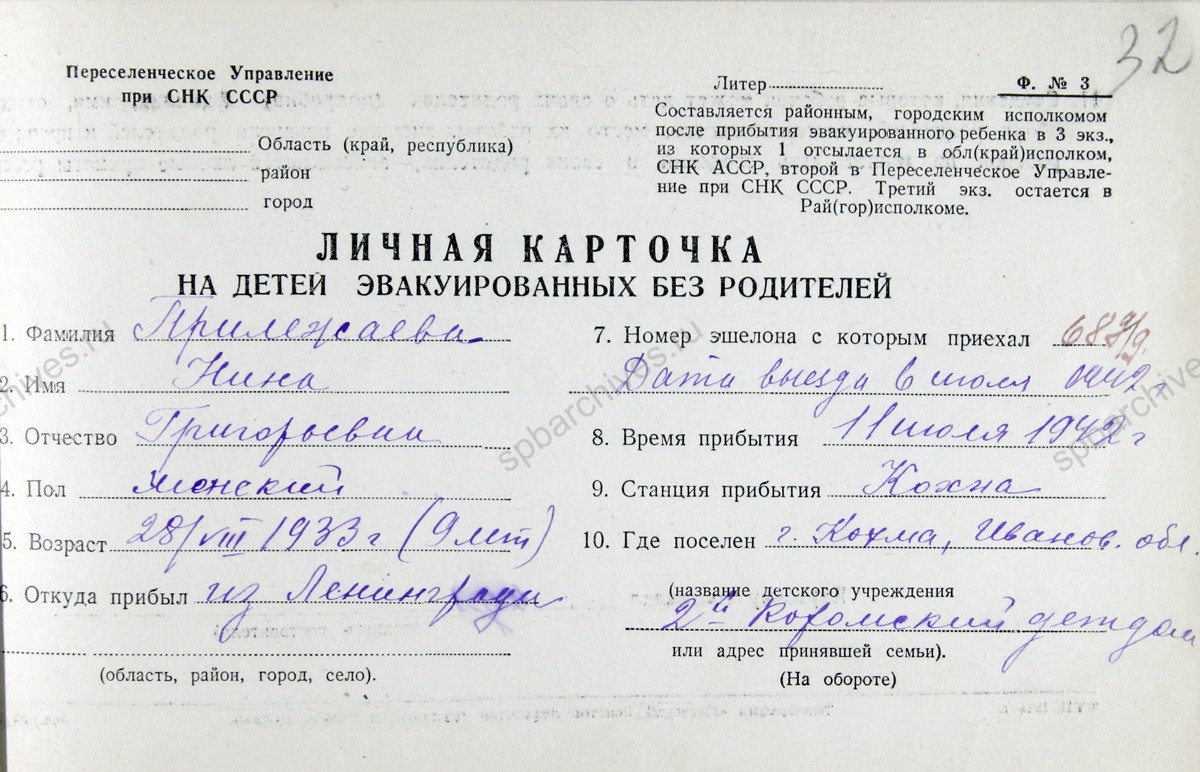 32
Переселенческое Управление
при СНК СССР
Область (край, республика)
район
город
Литер
Ф. № 3
Составляется районным, городским исполкомом
после прибытия эвакуированного ребенка в 3 экз.,
из которых 1 отсылается в обл(край)исполком,
СНК АССР, второй в Переселенческое Управле-
ние при СНК СССР. Третий экз. остается в
Рай(гор)исполкоме.
ЛИЧНАЯ КАРТОЧКА
НА ДЕТЕЙ ЭВАКУИРОВАННЫХ БЕЗ РОДИТЕЛЕЙ
1. Фамилия Прилежаева
2. Имя Нина
3. Отчество Григорьевна
4. Пол женский
5. Возраст 28/VIII 1933 г (9 лет)
6. Откуда прибыл из Ленинграда
(область, район, город, село).
7. Номер эшелона с которым приехал
Дата выезда 6 июля 1942 г
8. Время прибытия 11 июля 1942 г
9. Станция прибытия Кохма
10. Где поселен г. Кохма, Иванов. обл.
(название детского учреждения
2й Кохомский детдом
или адрес принявшей семьи).
(На обороте)
spbarchives.ru
spbarchives.ru
spbarchives